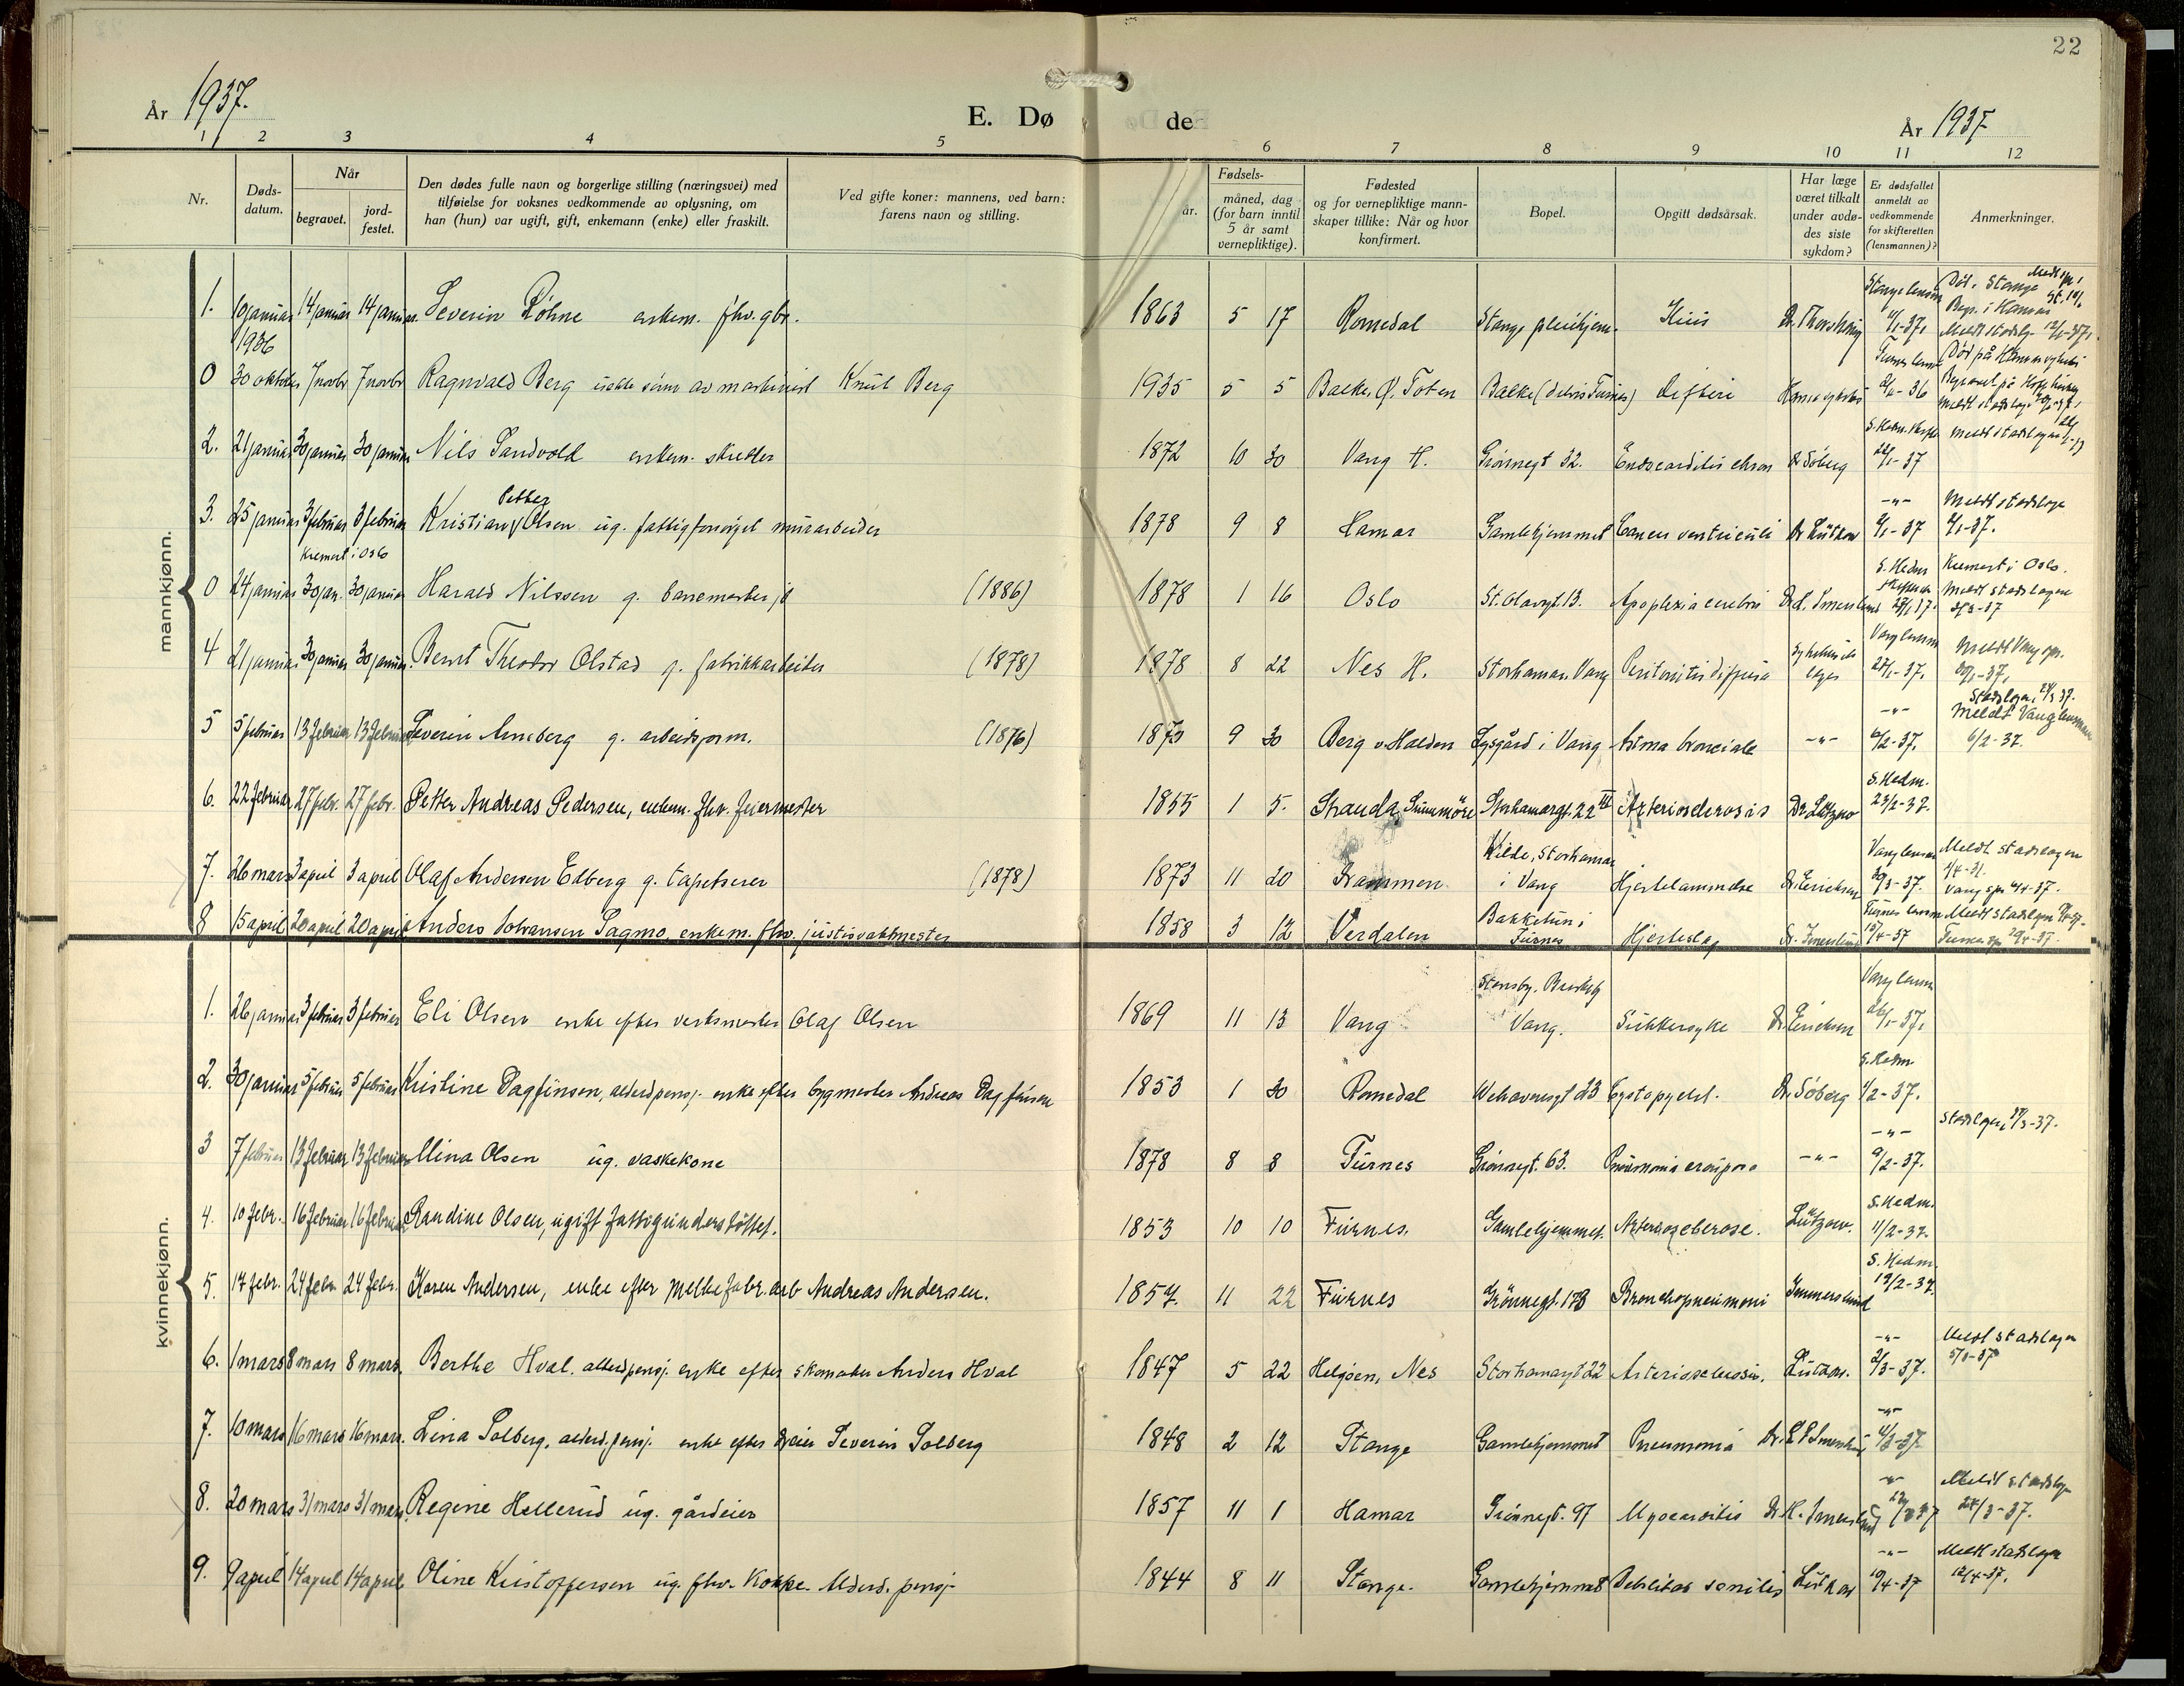 22
År 1937.
E. Dø
de
År 1937
1 2 3 4 5 6 7 8 9 10 11 12
Nr.
Døds-
datum.
Når
begravet.
jord-
festet.
Den dødes fulle navn og borgerlige stilling (næringsvei) med
tilføielse for voksnes vedkommende av oplysning, om
han (hun) var ugift, gift, enkemann (enke) eller fraskilt.
Ved gifte koner: mannens, ved barn:
farens navn og stilling.
Fødsels-
år.
måned, dag
(for barn inntil
5 år samt
vernepliktige).
Fødested
og for vernepliktige mann-
skaper tillike: Når og hvor
konfirmert.
Bopel.
Opgitt dødsårsak.
Har læge
været tilkalt
under avdø-
des siste
sykdom?
Er dødsfallet
anmeldt av
vedkommende
for skifteretten
(lensmannen)?
Anmerkninger.
mannkjønn.
1. 10 januar 14 januar 14 januar. Severin Röhne enkem. fhv. gbr. 1863 5 17 Romedal Stange pleiehjem. Dr. Thorshaug 11/1-37.
1936
0 30 oktober 7 novbr 7 novbr Ragnvald Berg uekte sönn av maskinist Knut Berg 1935 5 5 Balke, Ö. Toten Balke (delvis Furnes) difteri Hamar sykehus
2. 21 januar 30 januar 30 januar Nils Sandvold enkem. skredder 1872 10 30 Vang H. Grönnegt 32. Endocarditis chron Dr Söberg 22/1-37
3. 25 januar 3 februar 3 februar Kristian Petter Olsen ug. fattigforsörget murarbeider 1878 9 8 Hamar Gamlehjemmet Cancer ventriculi Dr Lützow -"- Meldt stadslege
Kremert i Oslo
0 24 januar 30 jan. 30 januar Harald Nilssen g. banemester (1886) 1878 1 16 Oslo St. Olavsgt. 13. Apoplexia cerebri Kremert i Oslo. Meldt stadslegen
4 21 januar 30 januar 30 januar. Bernt Theodor Olstad g. fabrikkarbeider (1878) 1878 8 22 Nes H. Storhamar, Vang Peritonitis diffusa Vang lensm 27/1-37.
5 5 februar 13 februar 13 februar Severin Arneberg g. arbeidsform. (1876) 1870 9 30 Berg v. Halden Lysgård i Vang Astma bronciale -"- -"- 6/2-37. Meldt Vang lensmann 6/2-37.
6. 22 februar 27 febr. 27 febr. Petter Andreas Pedersen, enkem. fhv. feiermester 1855 1 5. Stranda, Sunnmöre Storhamargt. 22 III Arteriosclerosis Dr Lützow S. Hedm. 23/2-37.
7. 26 mars 3 april 3 april Olaf Andersen Edberg g. tapetserer (1878) 1873 11 20 Drammen Kilde, Storhamar i Vang Hjertelammelse Dr. Erichsen Vang lensm 30/3-37. Meldt stadslegen
8 15 april 20 april 20 april Anders Johansen Sagmo, enkem. fhv. justisvaktmester 1858 3 12 Verdalen Bakketun i Furnes Hjerteslag Furnes lensm 15/4-37 Meldt stadslegen
kvinnekjønn.
1. 26 januar 3 februar 3 februar Eli Olsen enke efter verksmester Olaf Olsen 1869 11 13 Vang Vang. Sukkersyke Dr. Erichsen Vang lensm 26/1-37.
2. 30 januar 5 februar 5 februar Kristine Dagfinsen, alderd.pensj. enke efter bygmester Andreas Dagfinsen 1853 1 30 Romedal Wehavensgt 23 Cystopyelit. Dr. Söberg S. Hedm 1/2-37.
3 7 februar 13 februar 13 februar Mina Olsen ug. vaskekone 1878 8 8 Furnes Grönnegt. 63. Pneumonia crouposa -"- -"- 9/2-37.
4. 10 febr. 16 februar 16 februar Randine Olsen, ugift fattigunderstöttet. 1853 10 10 Furnes. Gamlehjemmet. Lützow. S. Hedm. 11/2-37.
5. 17 febr. 24 febr. 24 febr. Karen Andersen, enke efter melkefabr. arb Andreas Andersen. 1857. 11 22 Furnes Grönnegt. 178 Bronchopneumoni Immerslund S. Hedm. 19/2-37.
6. 1 mars 8 mars 8 mars. Berthe Hval, alderd.pensj. enke efter skomaker Anders Hval 1847 5 22 Helgöen, Nes Storhamargt 22 Arteriosclerosis. Lützow. -"- 2/3-37. Meldt stadslegen 5/3-37
7. 10 mars 16 mars 16 mars. Lina Solberg, alderd. pensj. enke efter dreier Severin Solberg 1848 2 12 Stange Gamlehjemmet Pneumonia -"- 11/3-37.
8. 20 mars 31 mars 31 mars Regine Hellerud ug. gårdeier 1857 11 1 Hamar Grönnegt. 97 Myocarditis -"- Meldt stadslege 24/3-37.
9. 9 april 14 april 14 april Oline Kristoffersen ug. fhv. kokke. Alderd. pensj- 1844 8 11 Stange. Gamlehjemmet Debilitas senilis Lützow -"- 10/4-37 Meldt stadslegen 12/4-37.